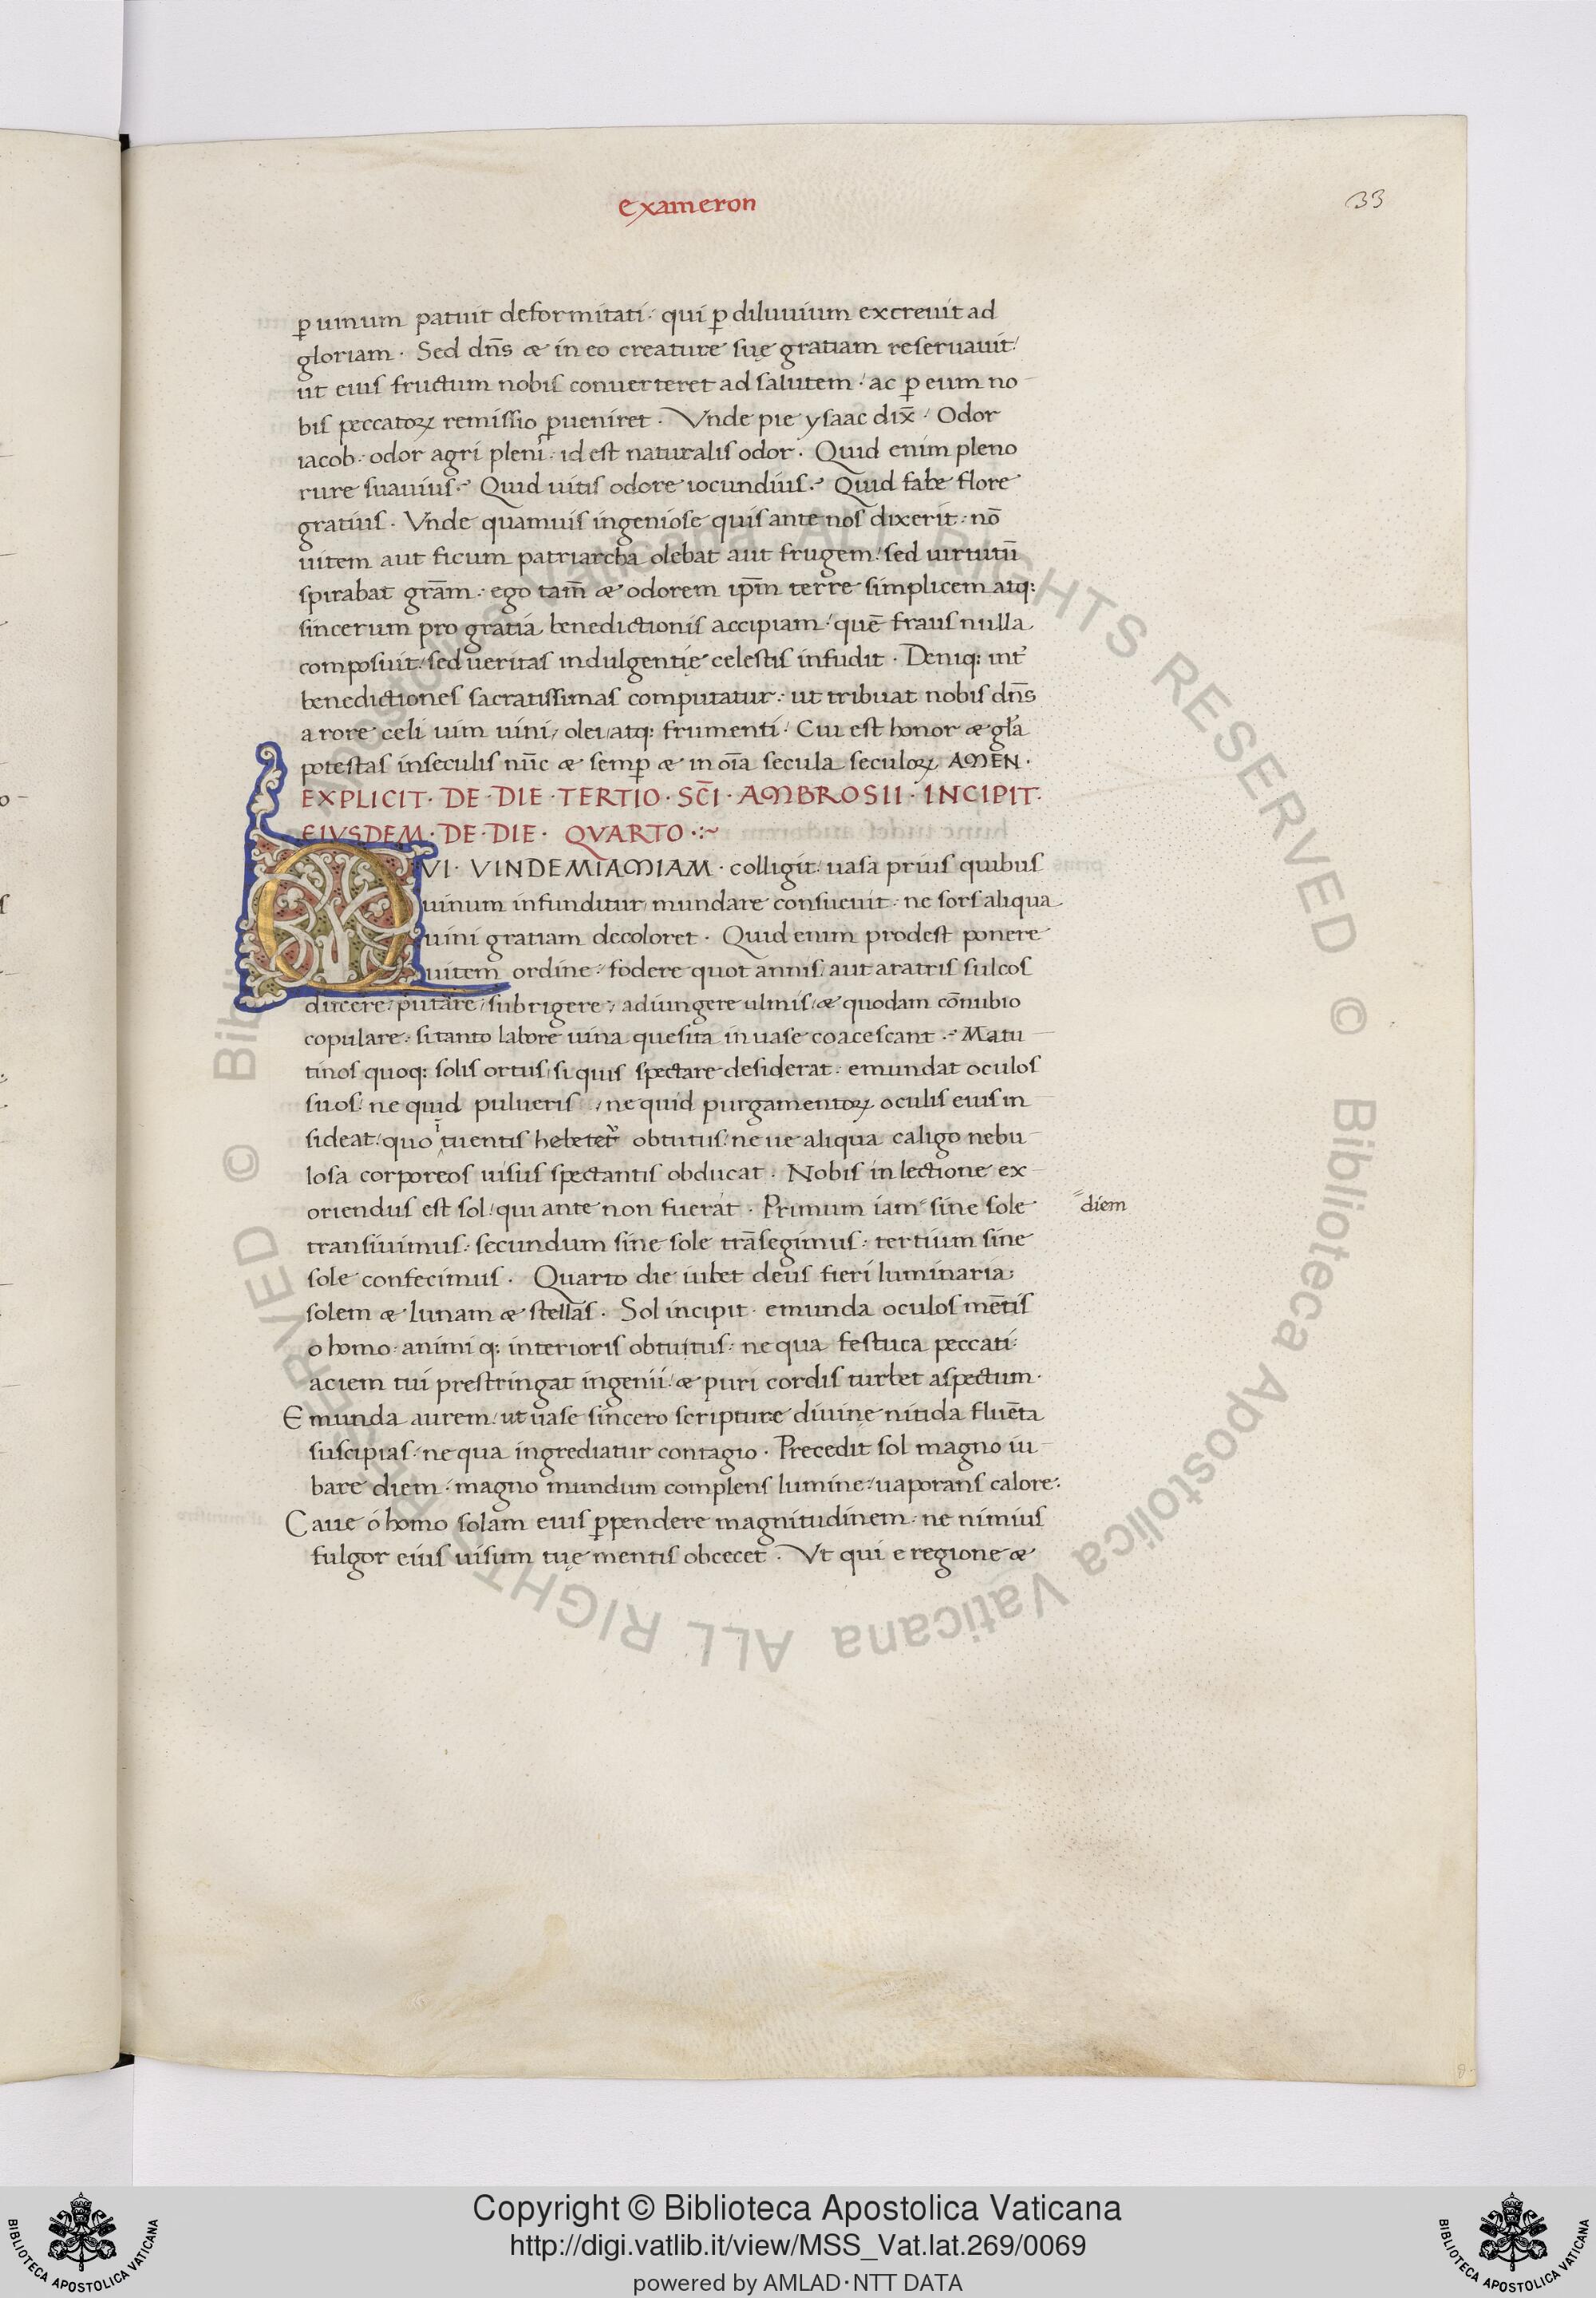 exameron
33
ꝑ uinum patuit deformitati· qui ꝑ diluuium excreuit ad
gloriam · Sed dn̄s æ in eo creature suę gratiam reseruauit·
ut eius fructum nobis conuerteret ad salutem · ac ꝑ eum no
bis peccatoꝝ remissio ꝑueniret · Vnde pie ysaac dix̄ · Odor
iacob · odor agri pleni · id est naturalis odor · Quid enim pleno
rure suauius · Quid uitis odore iocundius · Quid fabe flore
gratius · Vnde quamuis ingeniose quis ante nos dixerit · nō
uitem aut ficum patriarcha olebat aut frugem · sed uirtutū
spirabat grām · ego tam̄ æ odorem ip̄m terre simplicem atq:
sincerum pro gratia benedictionis accipiam · quē fraus nulla
composuit / sed ueritas indulgentię celestis infudit · Deniq: int̄
benedictiones sacratissimas computatur · ut tribuat nobis dn̄s
a rore celi uim uini, olei, atq: frumenti · Cui est honor æ gl̄a
potestas inseculis nūc æ semꝑ æ in oīa secula seculoꝝ AMEN ·
EXPLICIT · DE · DIE · TERTIO · SC̄I · AMBROSII · INCIPIT ·
EIVSDEM · DE · DIE · QVARTO ·:~
QVI · VINDEMIAM IAM · colligit · uasa prius quibus
uinum infunditur mundare consueuit · ne fors aliqua
uini gratiam decoloret · Quid enim prodest ponere
uitem ordine · fodere quot annis aut aratris sulcos
ducere / putare / subrigere / adiungere ulmis / æ quodam cōnubio
copulare · si tanto labore uina quesita in uase coacescant · Matu
tinos quoq: solis ortus si quis spectare desiderat · emundat oculos
suos · ne quid pulueris / ne quid purgamentoꝝ oculis eius in
sideat / quo ītuentis hebetet̄ obtutus / ne ue aliqua caligo nebu
losa corporeos uisus spectantis obducat · Nobis in lectione ex
oriendus est sol / qui ante non fuerat · Primum iam sine sole
diem
transiuimus · secundum sine sole trāsegimus · tertium sine
sole confecimus · Quarto die iubet deus fieri luminaria
solem æ lunam æ stellas · Sol incipit · emunda oculos mētis
o homo · animi q: interioris obtuitus · ne qua festuca peccati
aciem tui prestringat ingenii / æ puri cordis turbet aspectum ·
Emunda aurem / ut uase sincero scripturę diuinę nitida fluēta
suscipias · ne qua ingrediatur contagio · Precedit sol magno iu
bare diem · magno mundum complens lumine / uaporans calore:
Caue o homo solam eius ꝑpendere magnitudinem · ne nimius
fulgor eius uisum tuę mentis obcecet · Vt qui e regione æ
Biblioteca Apostolica Vaticana ALL RIGHTS RESERVED © Biblioteca Apostolica Vaticana ALL RIGHTS RESERVED ©
Copyright © Biblioteca Apostolica Vaticana
http://digi.vatlib.it/view/MSS_Vat.lat.269/0069
powered by AMLAD·NTT DATA
BIBLIOTECA APOSTOLICA VATICANA
BIBLIOTECA APOSTOLICA VATICANA